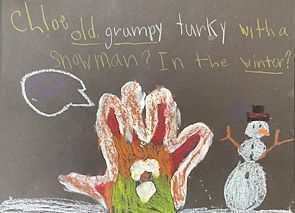 Chloe old grumpy turky with a
Snowman? In the winter?